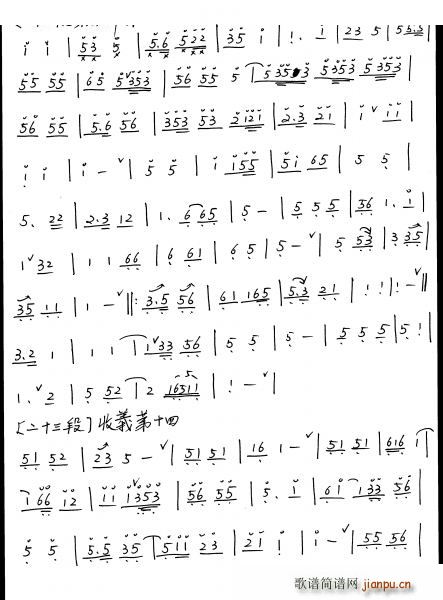 i i | 5 3 5 | 5.6 522 | 35 i | !. i | 23 5 | 53.3
55 55 | 65 5353 | 56 55 5 | 5353 5353 5353
56 55 | 5.6 56 | 353 53 2121 | 2.3 21 | i i i |
i i | i - | 5 5 | i 155 | 5i 65 | 5 5 |
5. 22 | 2.3 12 | 1. 665 | 5 - | 5 5 5 | 56 1. i |
1 32 | 1 1 66 | 6 61 | 6 5 | 5 - | 5 53 | 3 35 |
35 11 | 1 - ‖: 3.5 56 | 61 165 | 5.3 21 | ! ! | ! - ‖
3.2 1 | 1 1 | 1 33 56 | 5 5 | 5 - | 5 5 5 | 5 ! |
1. 2 | 5 52 | 2 16511 | ! - |
[二十三段] 收義第十四
51 52 | 23 5 - | 51 51 | 16 1 - | 51 51 | 616 1
1 66 12 | 11 1353 | 56 55 | 5. i | 6i 133 56 |
5 5 | 5.5 35 | 511 23 | 21 ! | i - | 55 56 |
歌谱简谱网
jianpu.cn